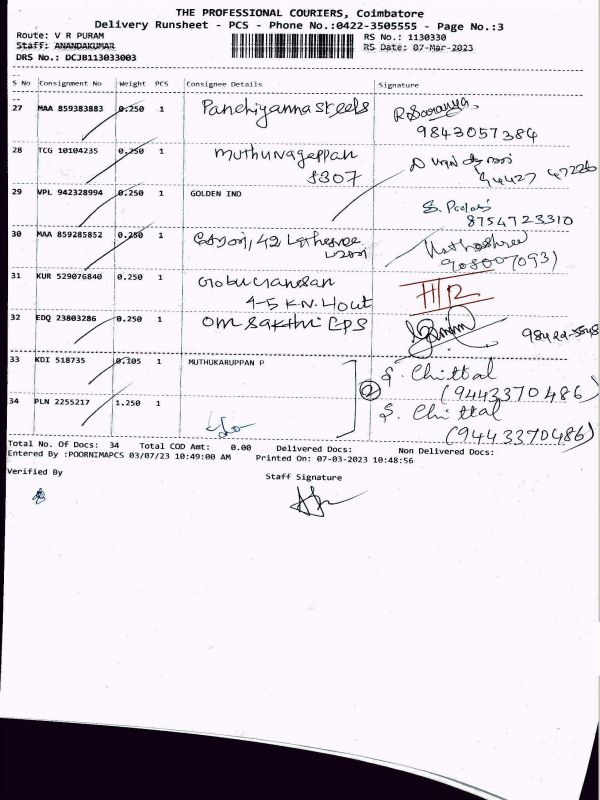 THE PROFESSIONAL COURIERS, Coimbatore
Delivery Runsheet - PCS - Phone No.:0422-3505555 - Page No.:3
Route: V R PURAM
RS No.: 1130330
Staff: ANANDAKUMAR
RS Date: 07-Mar-2023
DRS No.: DCJB113033003
S No Consignment No Weight PCS Consignee Details Signature
27 MAA 859383883 0.250 1 Panchiyanna steels
9843057384
28 TCG 10104235 0.250 1 muthuvageppan
S307
94427 47226
29 VPL 942328994 0.250 1 GOLDEN IND
8754723310
30 MAA 859285852 0.250 1
31 KUR 529076840 0.250 1 Gobuchandran
4-5 K.N. Hout
H/R
32 EDQ 23803286 0.250 1 Om Sakthi CPS
33 KDI 518735 0.105 1 MUTHUKARUPPAN P S. Chittal
2
(9443370486)
34 PLN 2255217 1.250 1 S. Chittal
(9443370486)
Total No. Of Docs: 34 Total COD Amt: 0.00 Delivered Docs: Non Delivered Docs:
Entered By :POORNIMAPCS 03/07/23 10:49:00 AM Printed On: 07-03-2023 10:48:56
Verified By
Staff Signature